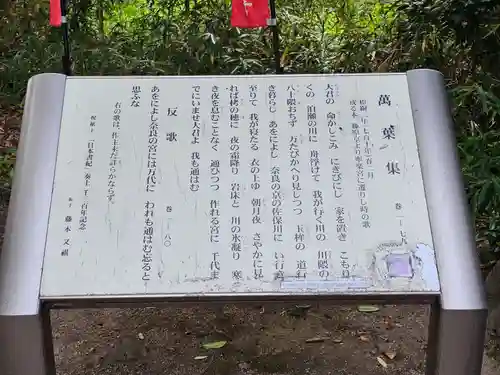 萬葉集　巻一―七
和銅三年(七百十年)春二月
或る本、藤原京より寧楽宮に遷りし時の歌
大君の　命かしこみ　にきびにし　家を置き　こもり
くの　泊瀬の川に　舟浮けて　我が行く川の　川隈の
八十隈おちず　万たびかへり見しつつ　玉桙の　道
き暮らし　あをによし　奈良の京の佐保川に　い行
至りて　我が寝たる　衣の上ゆ　朝月夜　さやかに見
れば　栲の穂に　夜の霜降り　岩床と　川の氷凝り　寒
き夜を　息むことなく　通ひつつ　作れる宮に　千代ま
でにいませ大君よ　我も通はむ
反歌　巻一―八〇
あをによし奈良の宮には万代に　われも通はむ忘ると
思ふな
右の歌は、作主未だ詳らかならず。
祝献　「日本書紀」奏上　千三百年記念
藤木